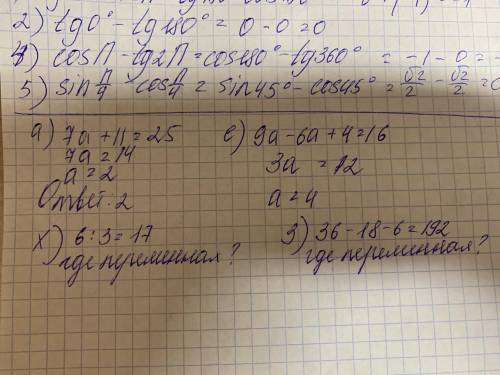 2) tg0° - tg180° = 0 - 0 = 0
4) cosП - tg2П = cos180° - tg360° = -1 - 0 = -
5) sin П/4 - cos П/4 = sin45° - cos45° = √2/2 - √2/2 = 0
а) 7а + 11 = 25
7а = 14
а = 2
Ответ. 2
е) 9а - 6а + 4 = 16
3а = 12
а = 4
х) 6 : 3 = 17
где переменная?
з) 36 - 18 - 6 = 192
где переменная?